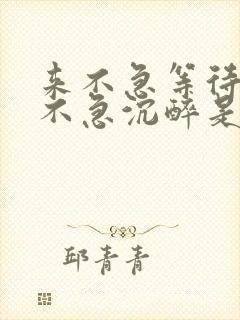 来不急等待
不急沉醉是
邱青青